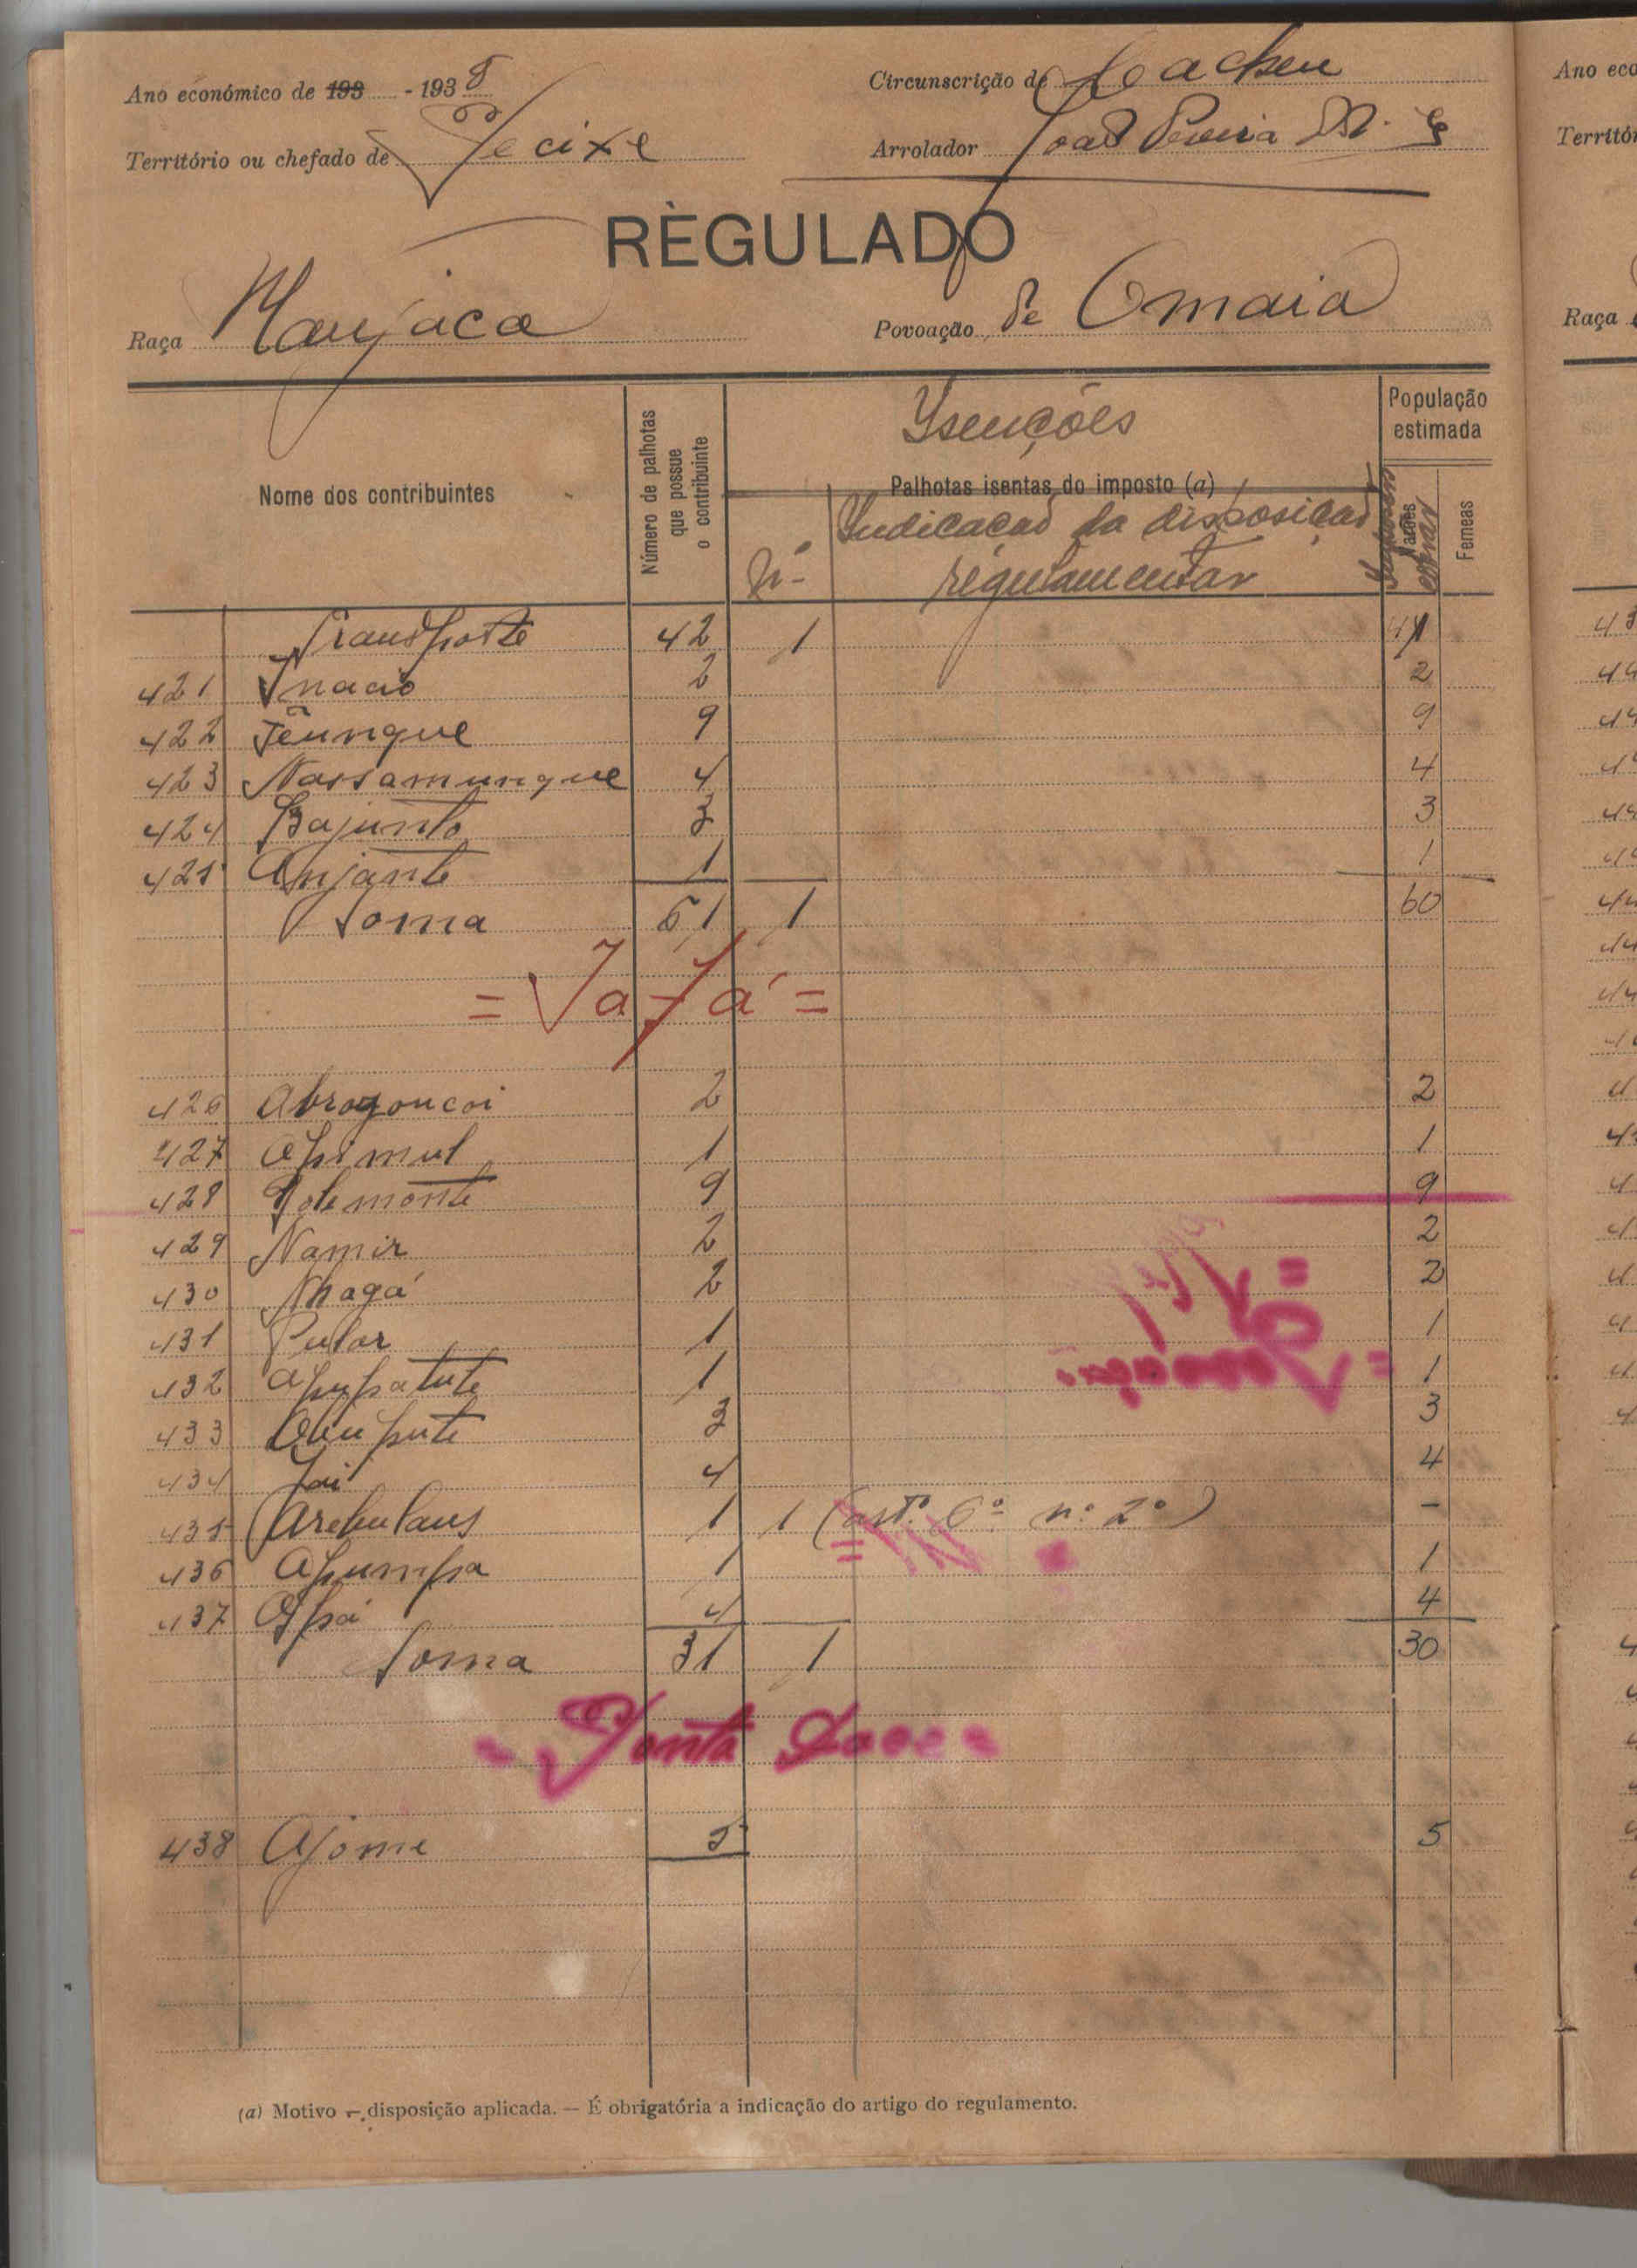 Ano económico de 193 - 1938
Circunscrição de Cacheu
Território ou chefado de Pecixe
Arrolador João Pereira
RÈGULADO
Raça Manjaca
Povoação de Omaia
Nome dos contribuintes
Número de palhotas que possue o contribuinte
Isenções
Palhotas isentas do imposto (a)
Nº
Indicação da disposição regulamentar
População estimada
Machos
Femeas
Transporte 42 1 41
421 Inacio 2 2
422 Tẽunque 9 9
423 Nassamunque 4 4
424 Bajunto 3 3
425 Anjante 1 1
Soma 61 1 60
426 2 2
427 Apimul 1 1
428 9 9
429 Namir 2 2
430 Nhagá 2 2
431 Pular 1 1
432 Apupatute 1 1
433 3 3
434 Jai 4 4
435 1 1 (artº 6º nº 2º) -
436 Apumpa 1 1
437 Apá 4 4
Soma 31 1 30
438 Ajome 5 5
(a) Motivo - disposição aplicada. — É obrigatória a indicação do artigo do regulamento.
Ano eco
Territó
Raça